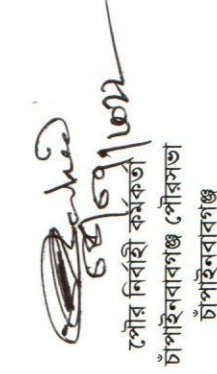 পৌর নির্বাহী কর্মকর্তা
চাঁপাইনবাবগঞ্জ পৌরসভা
চাঁপাইনবাবগঞ্জ